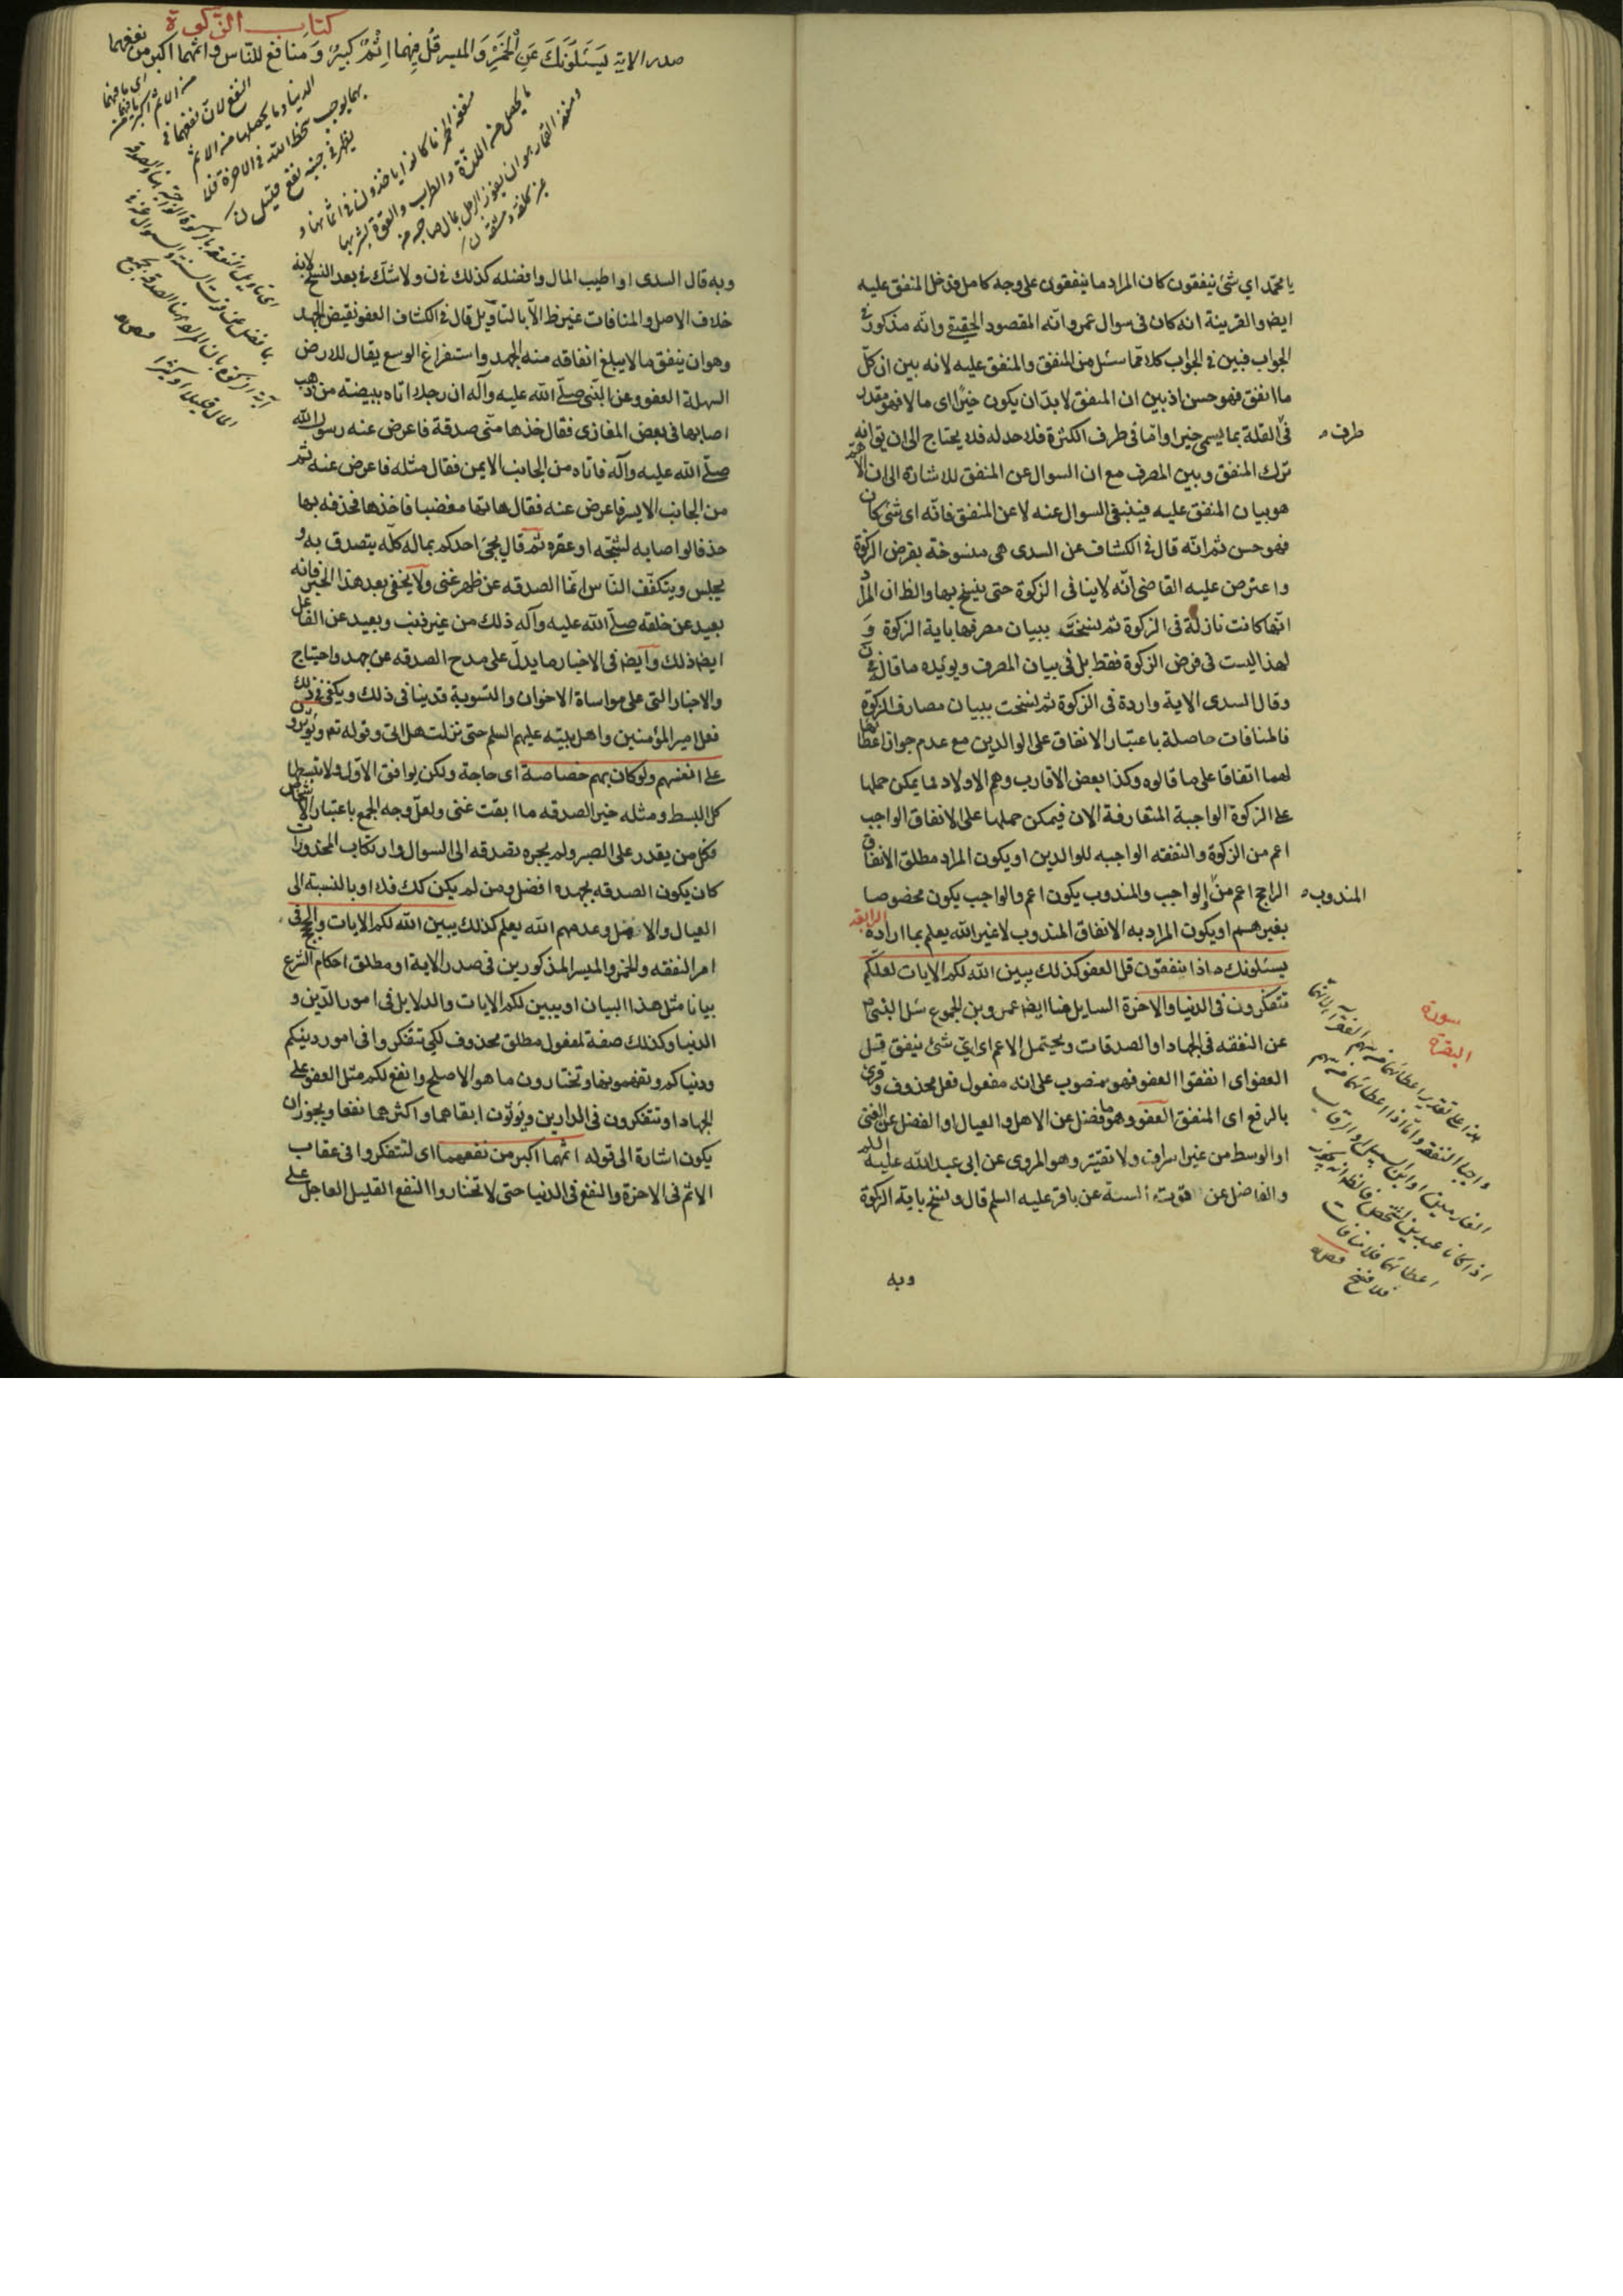 يا محمد اي شئ ينفقون كان المراد ما ينفقون على وجه كامل فدخل المنفق عليه
ايض والقرينة انه كان فى سوال عمرو انه المقصود الحقيقى وانه مذكور فى
الجواب فبين فى الجواب كلا مما سئل من المنفق والمنفق عليه لانه بين ان كل
ما انفق فهو حسن اذ بين ان المنفق لا بد ان يكون خيرا اى مالا فهو مقدر
فى القلة بما يسمى خيرا واما فى طرف الكثرة فلا حد له فلا يحتاج الى ان يق انه
طرف
ترك المنفق وبين المصرف مع ان السوال عن المنفق للاشارة الى ان الاهم
هو بيان المنفق عليه فينبغى السوال عنه لا عن المنفق فانه اى شئ كان
فهو حسن ثم انه قال فى الكشاف عن السدى هى منسوخة بفرض الزكوة
واعترض عليه القاضى انه لا ينافى الزكوة حتى ينسخ بها والظ ان المراد
انها كانت نازلة فى الزكوة ثم نسخت ببيان مصرفها باية الزكوة و
لهذا ليست فى فرض الزكوة فقط بل فى بيان المصرف ويؤيده ما قال فى ن
وقال السدى الاية واردة فى الزكوة ثم نسخت ببيان مصارف الزكوة
فالمنافات حاصلة باعتبار الانفاق على الوالدين مع عدم جواز اعطائها
لهما اتفاقا على ما قالوه وكذا بعض الاقارب وهم الاولاد فما يمكن حملها
على الزكوة الواجبة المتعارفة الان فيمكن حملها على الانفاق الواجب
اعم من الزكوة والنفقه الواجبه للوالدين او يكون المراد مطلق الانفاق
الراجح اعم من الواجب والمندوب يكون اعم والواجب يكون مخصوصا
المندوب
بغيرهم او يكون المراد به الانفاق المندوب لا غير الله يعلم بما اراده الرابعة
يسئلونك ماذا ينفقون قل العفو كذلك يبين الله لكم الايات لعلكم
تتفكرون فى الدنيا والاخرة السايل هنا ايض عمرو بن الجموع سئل النبى ص
سورة
البقرة
عن النفقه فى الجهاد او الصدقات ويحتمل الاعم اى اى شئ ينفق قل
العفو اى انفقوا العفو فهو منصوب على انه مفعول فعل محذوف وقرئ
بالرفع اى المنفق العفو وهو ما فضل عن الاهل والعيال او الفضل عن الغنى
او الوسط من غير اسراف ولا تقتير وهو المروى عن ابى عبد الله عليه السلم
والفاضل عن قوت السنة عن باقر عليه السلم قال ونسخ باية الزكوة
هذا على تقدير اعطائهما من سهم الفقراء لانهما
واجبا النفقه واما اذا اعطائهما من سهم
الغارمين او ابن السبيل او الرقاب
اذا كانا عبدين لشخص فالظ انه يجوز
اعطائهما فلا منافات
فلا نسخ
وبه
كتاب الزكوة
صدر الاية يَسْئَلُونَكَ عَنِ الْخَمْرِ وَالميسر قُل فِيهِمَا اِثْمٌ كَبيرٌ وَمَنافع للنّاس واثمهما اكبر من نفعهما
منفعة الخمر ما كانوا ياخذون فى اثمانها و
ما يحصل من اللذة والطرب والقوة بشربها
ومنفعة القمار هو ان يفوز الرجل بمال صاحبه من
غير كلفة ومشقة ن
وبه قال السدى او اطيب المال وافضله كذلك فى ن ولا شك فى بعد النسخ لانه
خلاف الاصل والمنافات غير ظ الا بالتاويل قال فى الكشاف العفو نقيض الجهد
وهو ان ينفق ما لا يبلغ انفاقه منه الجهد واستفراغ الوسع يقال للارض
السهلة العفو وعن النبى صلى الله عليه وآله ان رجلا اتاه ببيضة من ذهب
اصابها فى بعض المغازى فقال خذها منى صدقة فاعرض عنه رسول الله
صلى الله عليه وآله فاتاه من الجانب الايمن فقال مثله فاعرض عنه ثم
من الجانب الايسر فاعرض عنه فقال هاتها مغضبا فاخذها فحذفه بها
حذفا لو اصابه لشجه او عقره ثم قال يجئ احدكم بماله كله يتصدق به و
يجلس ويتكفف الناس انما الصدقه عن ظهر غنى ولا يخفى بعد هذا الخبر فانه
بعيد عن خلقه صلى الله عليه وآله ذلك من غير ذنب وبعيد عن الفاعل
ايض ذلك وايض فى الاخبار ما يدل على مدح الصدقه عن جهد واحتياج
والاخبار التى على مواساة الاخوان والتسوية قد ينافى ذلك ويكفى فى ذلك
فعل امير المؤمنين واهل بيته عليهم السلم حتى نزلت هل اتى وقوله تع ويؤثرون
على انفسهم ولو كان بهم خصاصة اى حاجة ولكن يوافق الاول ولا تبسطها
كل البسط ومثله خير الصدقه ما ابقت غنى ولعل وجه الجمع باعتبار الاشخاص
فكل من يقدر على الصبر ولم يجره تصدقه الى السوال وارتكاب المحذورات
كان يكون الصدقه بجهده افضل ومن لم يكن كك فلا او بالنسبة الى
العيال والاهل وعدمهم الله يعلم كذلك يبين الله لكم الايات والحجج فى
امر النفقه والخمر والميسر المذكورين فى صدر الاية او مطلق احكام الشرع
بيانا مثل هذا البيان او يبين لكم الايات والدلايل فى امور الدين و
الدنيا وكذلك صفة لمفعول مطلق محذوف لكى تتفكروا فى امور دينكم
ودنياكم وتفهمونها وتختارون ما هو الاصلح وانفع لكم مثل العفو على
الجهد او تتفكرون فى الدارين ويؤثرون ابقاهما واكثرهما نفعا ويجوز ان
يكون اشارة الى قوله اثمهما اكبر من نفعهما اى لتتفكروا فى عقاب
الاثم فى الاخرة والنفع فى الدنيا حتى لا تختاروا النفع القليل العاجل على